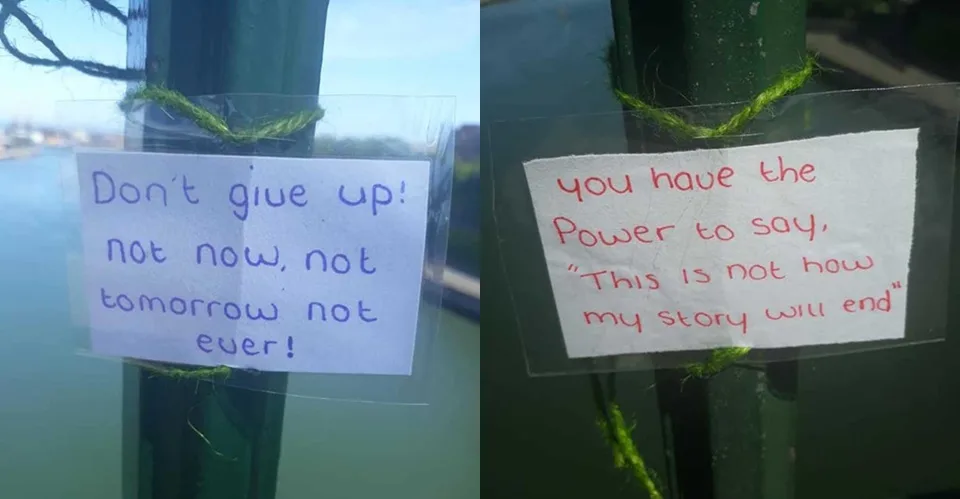 Don't give up!
not now, not
tomorrow not
ever!
you have the
Power to say,
"This is not how
my story will end"